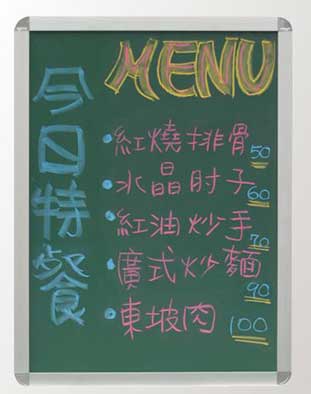 MENU
今日特餐
•紅燒排骨 50
•水晶肘子 60
•紅油炒手 70
•廣式炒麵 90
•東坡肉 100